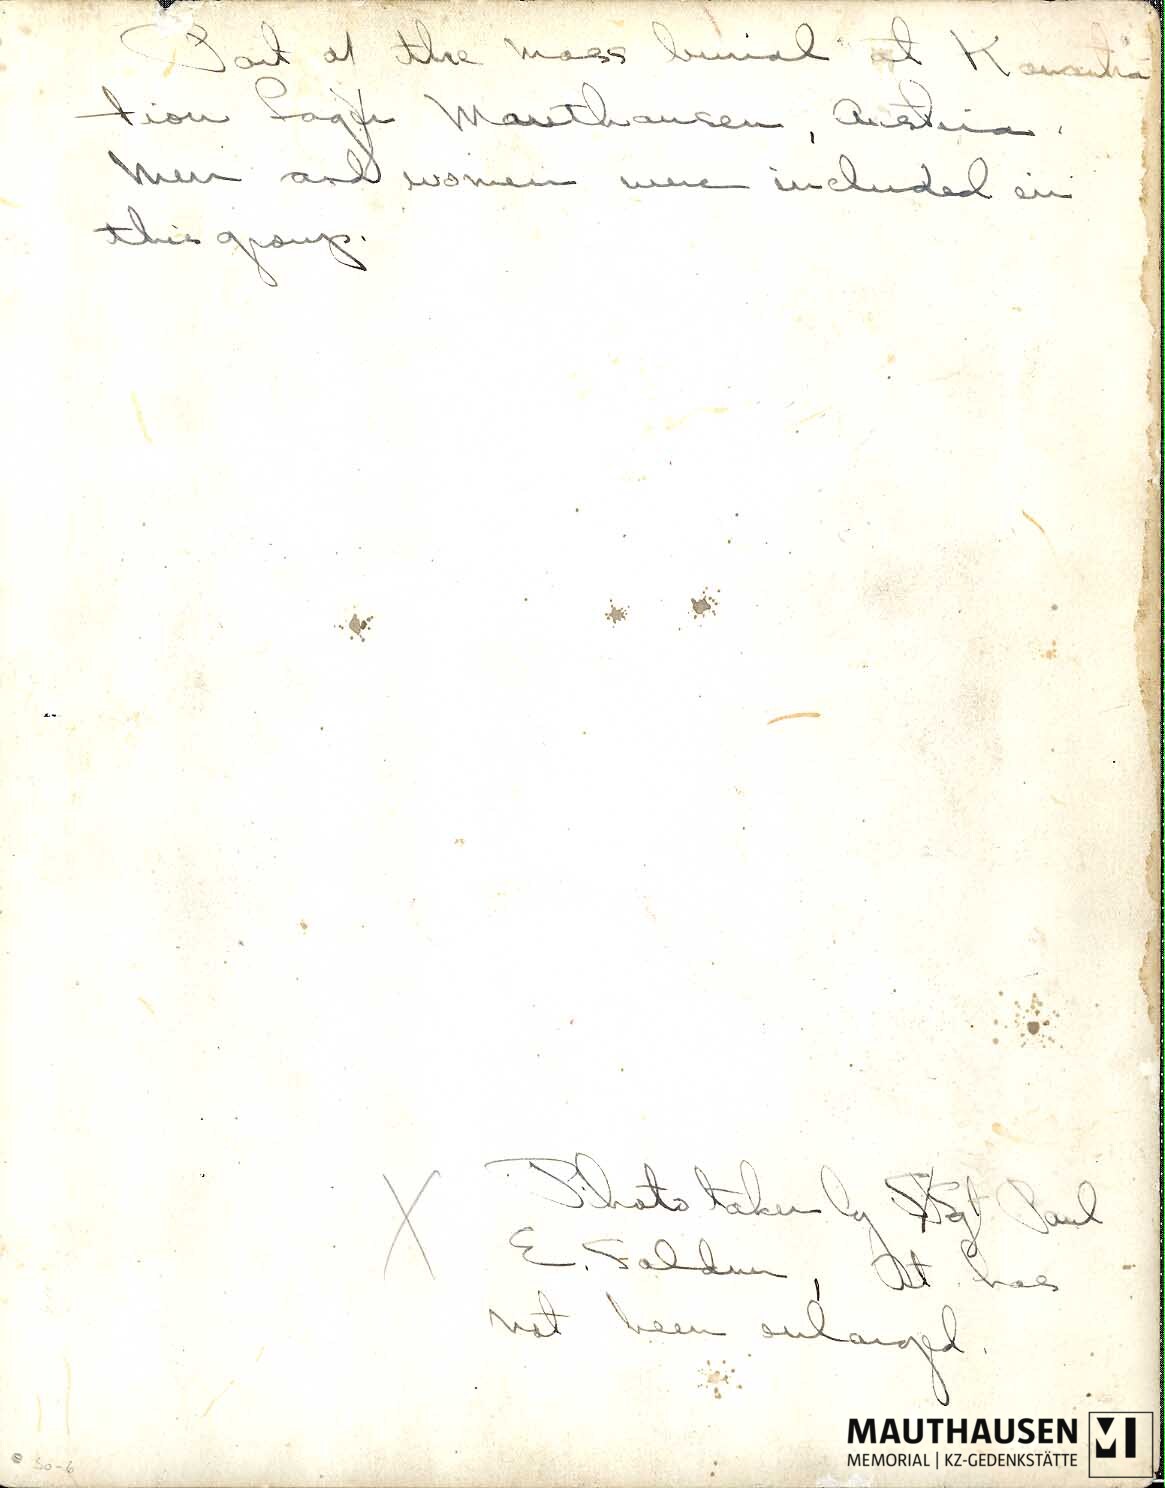 Part of the mass burial at Konzentra
tion Lager Mauthausen, Austria.
Men and women were included in
this group.
X Photo taken by S/Sgt Paul
E. Soldner, It has
not been enlarged.
MAUTHAUSEN
MEMORIAL | KZ-GEDENKSTÄTTE
30-6